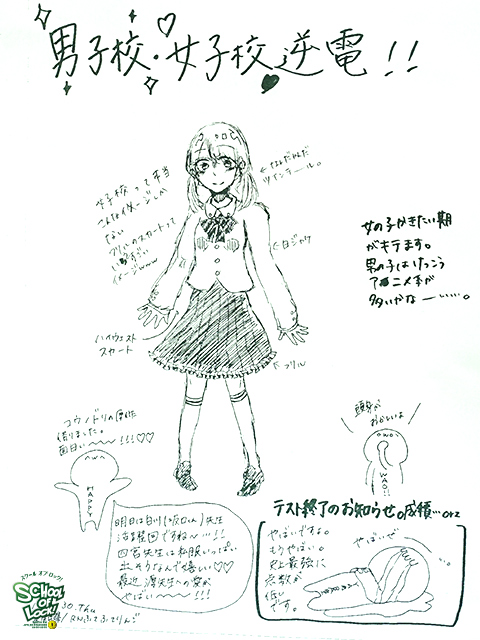 男子校・女子校逆電!!
←なんだかんだ
ツインテール。
女子校って本当
こんなイメージしか
ない
フリルのスカートって
イメージwww
←白ジャケ
女の子かきたい期
がキテます。
男の子はけっこう
アニメ本が
多いかなー……。
ハイウエスト
スカート
←フリル
コウノドリの原作
借りました。
面白い〜〜〜!!!♡♡
HAPPY
頭身が
おかしいよ
WAO!!
明日は白川(坂口くん)先生
ですね〜…!!
四宮先生は私服いっぱい
出そうなんで嬉しい♡♡
最近 先生への愛が
やばい〜〜〜!!!
テスト終了のお知らせ。成績…orz
やばいですよ。
もうやばい。
史上最強に
点数が
低い
です。
やばいぜ
スクール オブ ロック!
SCHOOL OF LOCK!
30.Thu